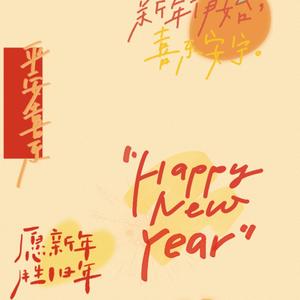 新年伊始，
喜乐安宁。
平安喜乐
"Happy
New
Year"
愿新年
胜旧年